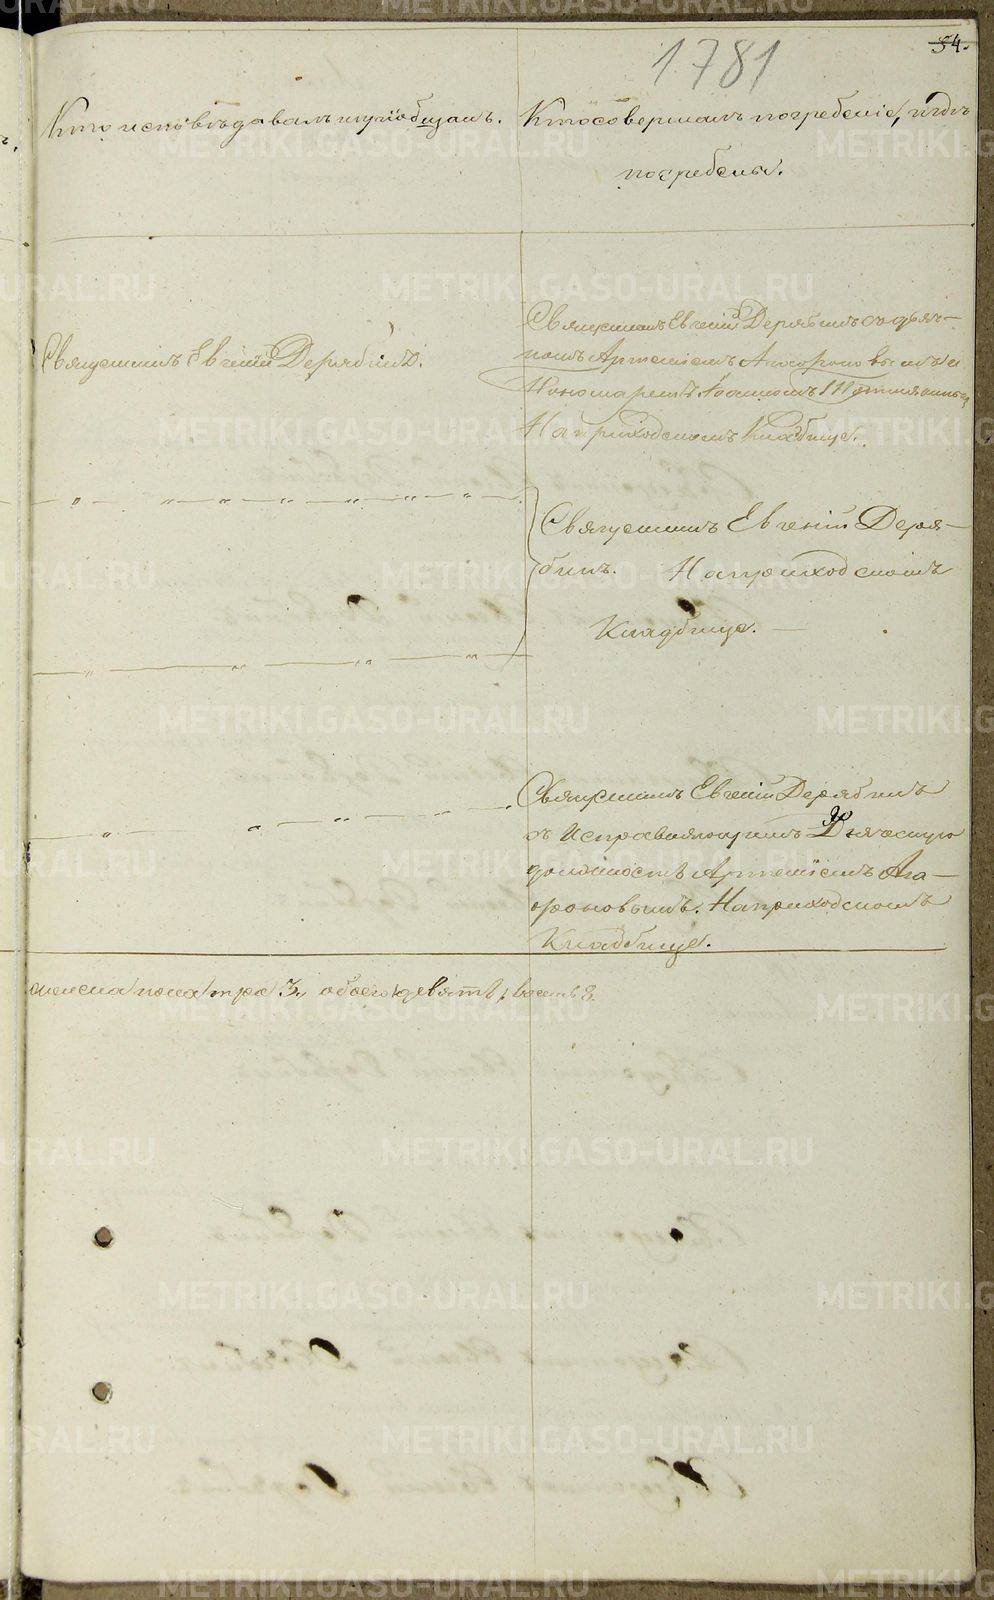 1781
54.
Кто исповѣдавалъ и пріобщалъ.
Кто совершалъ погребеніе, и гдѣ
погребены.
Священникъ Евгеній Дерябинъ.
Священникъ Евгеній Дерябинъ съ дьяч-
комъ Артеміемъ Агафоновымъ и
Пономаремъ Іоанномъ
На приходскомъ кладбище.
Священникъ Евгеній Деря-
бинъ. На приходскомъ
Кладбище.
Священникъ Евгеній Дерябинъ
съ Исправляющимъ Дьяческую
должность Артеміемъ Ага-
фоновымъ. На приходскомъ
Кладбище.
женска пола три 3, обоего девять, восемь 8.
METRIKI.GASO-URAL.RU